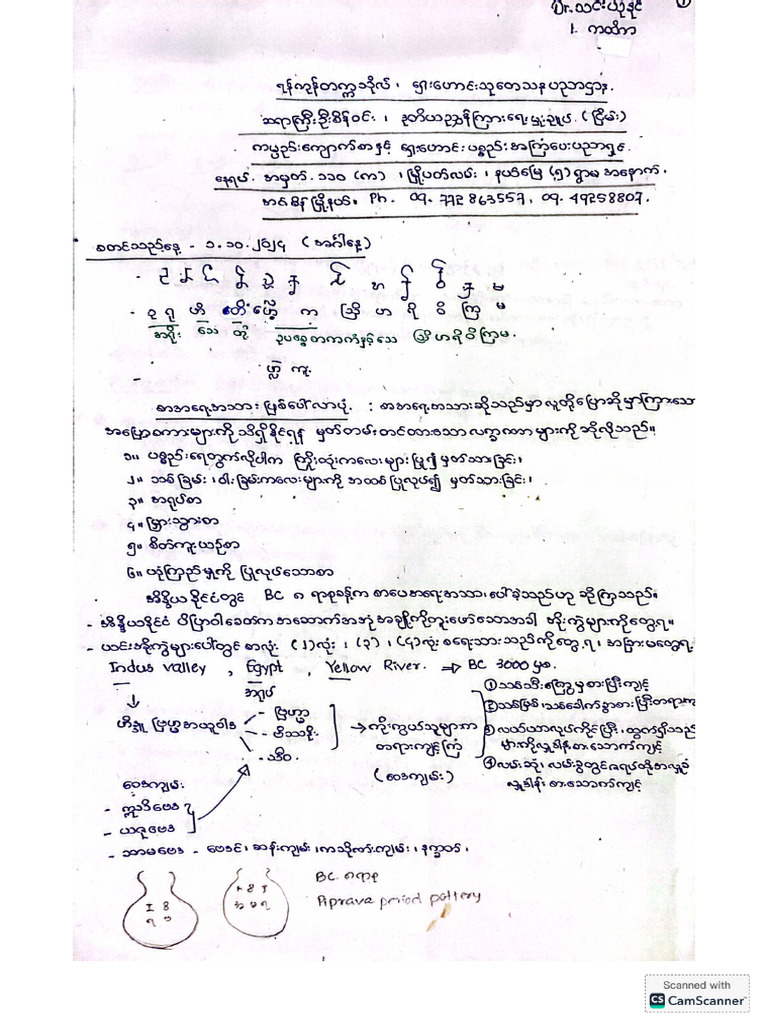 Dr. သင်းယုနိုင် ①
1. ကထိက
ရန်ကုန်တက္ကသိုလ်၊ ရှေးဟောင်းသုတေသနပညာဌာန.
ဆရာကြီးဦးစိန်ဝင်း၊ ဒုတိယညွှန်ကြားရေးမှူးချုပ်. (ငြိမ်း)
ကမ္ပည်းကျောက်စာနှင့် ရှေးဟောင်းပစ္စည်းအကြံပေးပညာရှင်.
နေရပ်. အမှတ်. ၁၁၀ (က)၊ မြို့ပတ်လမ်း၊ နယ်မြေ (၅) ရွာမ အနောက်.
အင်းစိန်မြို့နယ်။ Ph. 09. 772 863557, 09. 49258807.
စတင်သည့်နေ့ - ၁.၁၀.၂၀၂၄ (အင်္ဂါနေ့)
သြိဟရိဝိကြမ
သြိဟရိဝိကြမ.
စာအရေးအသား ဖြစ်ပေါ်လာပုံ. : စာအရေးအသားဆိုသည်မှာ လူတို့ပြောဆိုမှာကြားသော
အပြောစကားများကို သိရှိနိုင်ရန် မှတ်တမ်းတင်ထားသော လက္ခဏာများကို ဆိုလိုသည်။
၁။ ပစ္စည်းရေတွက်လိုပါက ကြိုးထုံးကလေးများ ပြု၍ မှတ်သားခြင်း၊
၂။ သစ်ခြမ်း၊ ဝါးခြမ်းကလေးများကို အထစ်ပြုလုပ်၍ မှတ်သားခြင်း၊
၃။ အရုပ်စာ
၄။ မြှားသွားစာ
၅။ စိတ်ကူးယဉ်စာ
၆။ ယုံကြည်မှုကို ပြုလုပ်သောစာ
အိန္ဒိယနိုင်ငံတွင် BC ၈ ရာစုခန့်က စာပေအရေးအသား ပေါ်ခဲ့သည်ဟု ဆိုကြသည်။
- အိန္ဒိယနိုင်ငံ ပိပြာဝါခေတ်က အဆောက်အအုံအချို့ကို တူးဖော်သောအခါ အိုးကွဲများကိုတွေ့ရ။
- ယင်းအိုးကွဲများပေါ်တွင် စာလုံး (၂) လုံး၊ (၃)၊ (၄) လုံး စရေးသားသည်ကိုတွေ့.ရ၊ အခြားမတွေ့ရ.
Indus valley, Egypt, Yellow River. ⇒ BC 3000 မှစ.
အရုပ်
ဟိန္ဒူ ဗြဟ္မာအယူဝါဒ
- ဗြဟ္မာ
- ဗိဿနိုး
- သီဝ.
→ ကိုးကွယ်သူများက တရားကျင့်ကြံ
(ဝေဒကျမ်း)
① သစ်သီးကြွေမှ စားပြီးကျင့်
② သစ်မြစ်၊ သစ်ခေါက် စားပြီး တရားကျ
③ လယ်ယာလုပ်ကိုင်ပြီး၊ ထွက်ရှိသည်
များကို လှူဒါန်း စားသောက်ကျင့်
လှူဒါန်း စားသောက်ကျင့်
ဝေဒကျမ်း
- ဣရုဗေဒ
- ယဇုဗေဒ
- သာမဗေဒ - ဗေဒင်၊ ဆန်းကျမ်း၊ ကသိုဏ်းကျမ်း၊ နက္ခတ်၊
BC. ၈ ရာစု
Piprava period pottery
Scanned with
CS CamScanner